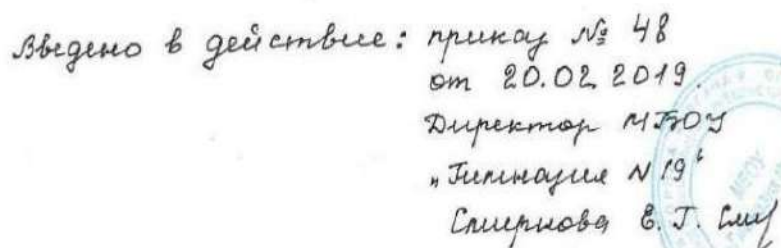 Введено в действие: приказ № 48
от 20.02.2019.
Директор МБОУ
„Гимназия N 19"
Смирнова Е. Г.
МБОУ